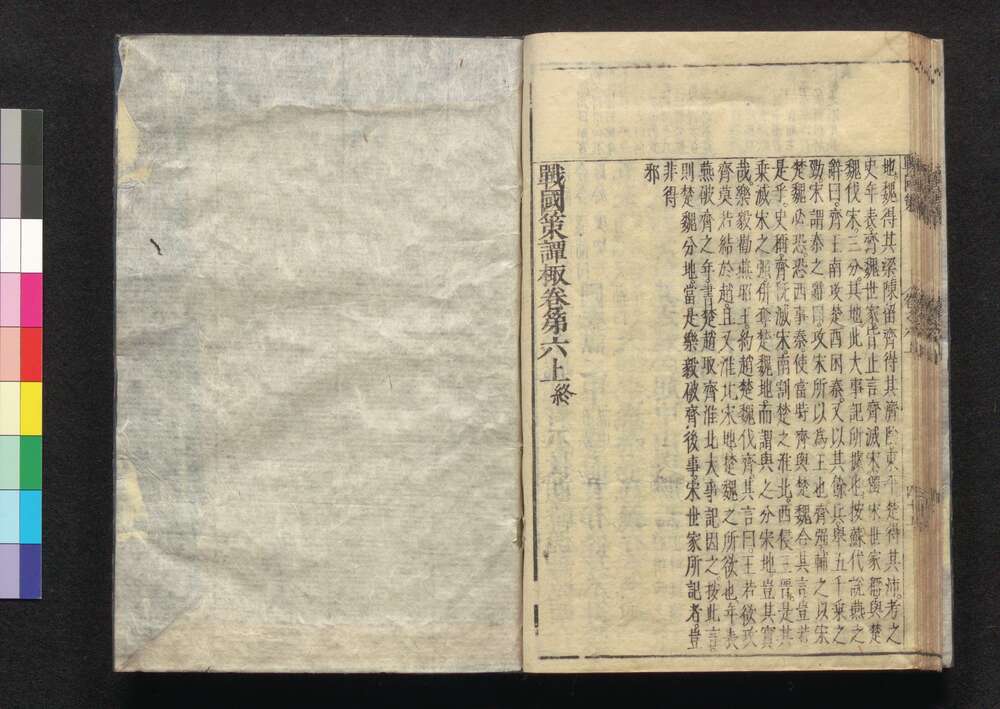 地魏得其梁陳留齊得其濟陰東平楚得其沛考之
史年表齊魏世家皆止言齊滅宋當宋世家言與楚
魏伐宋三分其地此大事記所據也按蘇代說燕之
辭曰齊王南攻楚西困秦又以其餘兵舉五千乘之
勁宋謂秦之辭曰攻宋所以為王也齊強輔之以宋
楚魏必恐恐西事秦使當時齊與楚魏合其言豈若
是乎史稱齊既滅宋南割楚之淮北西侵三晉是其
乘滅宋之強併奪楚魏地而謂與之分宋地豈其實
哉樂毅勸燕昭王約趙楚魏伐齊其言曰王若欲攻
齊莫若結於趙且又淮北宋地楚魏之所欲也年表
燕破齊之年書楚趙取齊淮北大事記因之按此言
則楚魏分地當是樂毅破齊後事宋世家所記者豈
非得
邪
戰國策譚棷卷第六上終